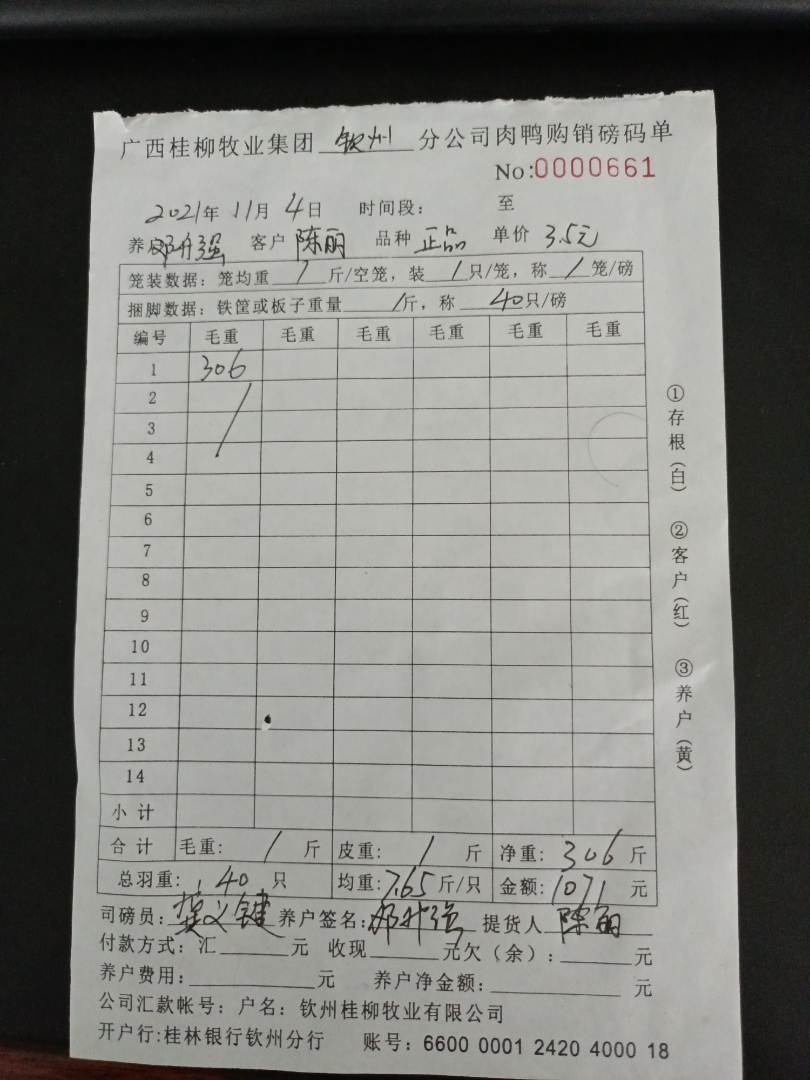 广西桂柳牧业集团 钦州 分公司肉鸭购销磅码单
No:0000661
2021年 11月 4日 时间段： 至
养户 邓升强 客户 陈丽 品种 正品 单价 3.5元
笼装数据：笼均重 / 斤/空笼，装 / 只/笼，称 / 笼/磅
捆脚数据：铁筐或板子重量 / 斤，称 40只/磅
编号 毛重 毛重 毛重 毛重 毛重 毛重
1 306
2
3
4
5
6
7
8
9
10
11
12
13
14
小计
合计 毛重： / 斤 皮重： / 斤 净重：306 斤
总羽重：40 只 均重：7.65 斤/只 金额：1071 元
司磅员：龚义键 养户签名：邓升强 提货人 陈丽
付款方式：汇 元 收现 元欠（余）： 元
养户费用： 元 养户净金额： 元
公司汇款帐号：户名：钦州桂柳牧业有限公司
开户行:桂林银行钦州分行 账号：6600 0001 2420 4000 18
①存根（白） ②客户（红） ③养户（黄）